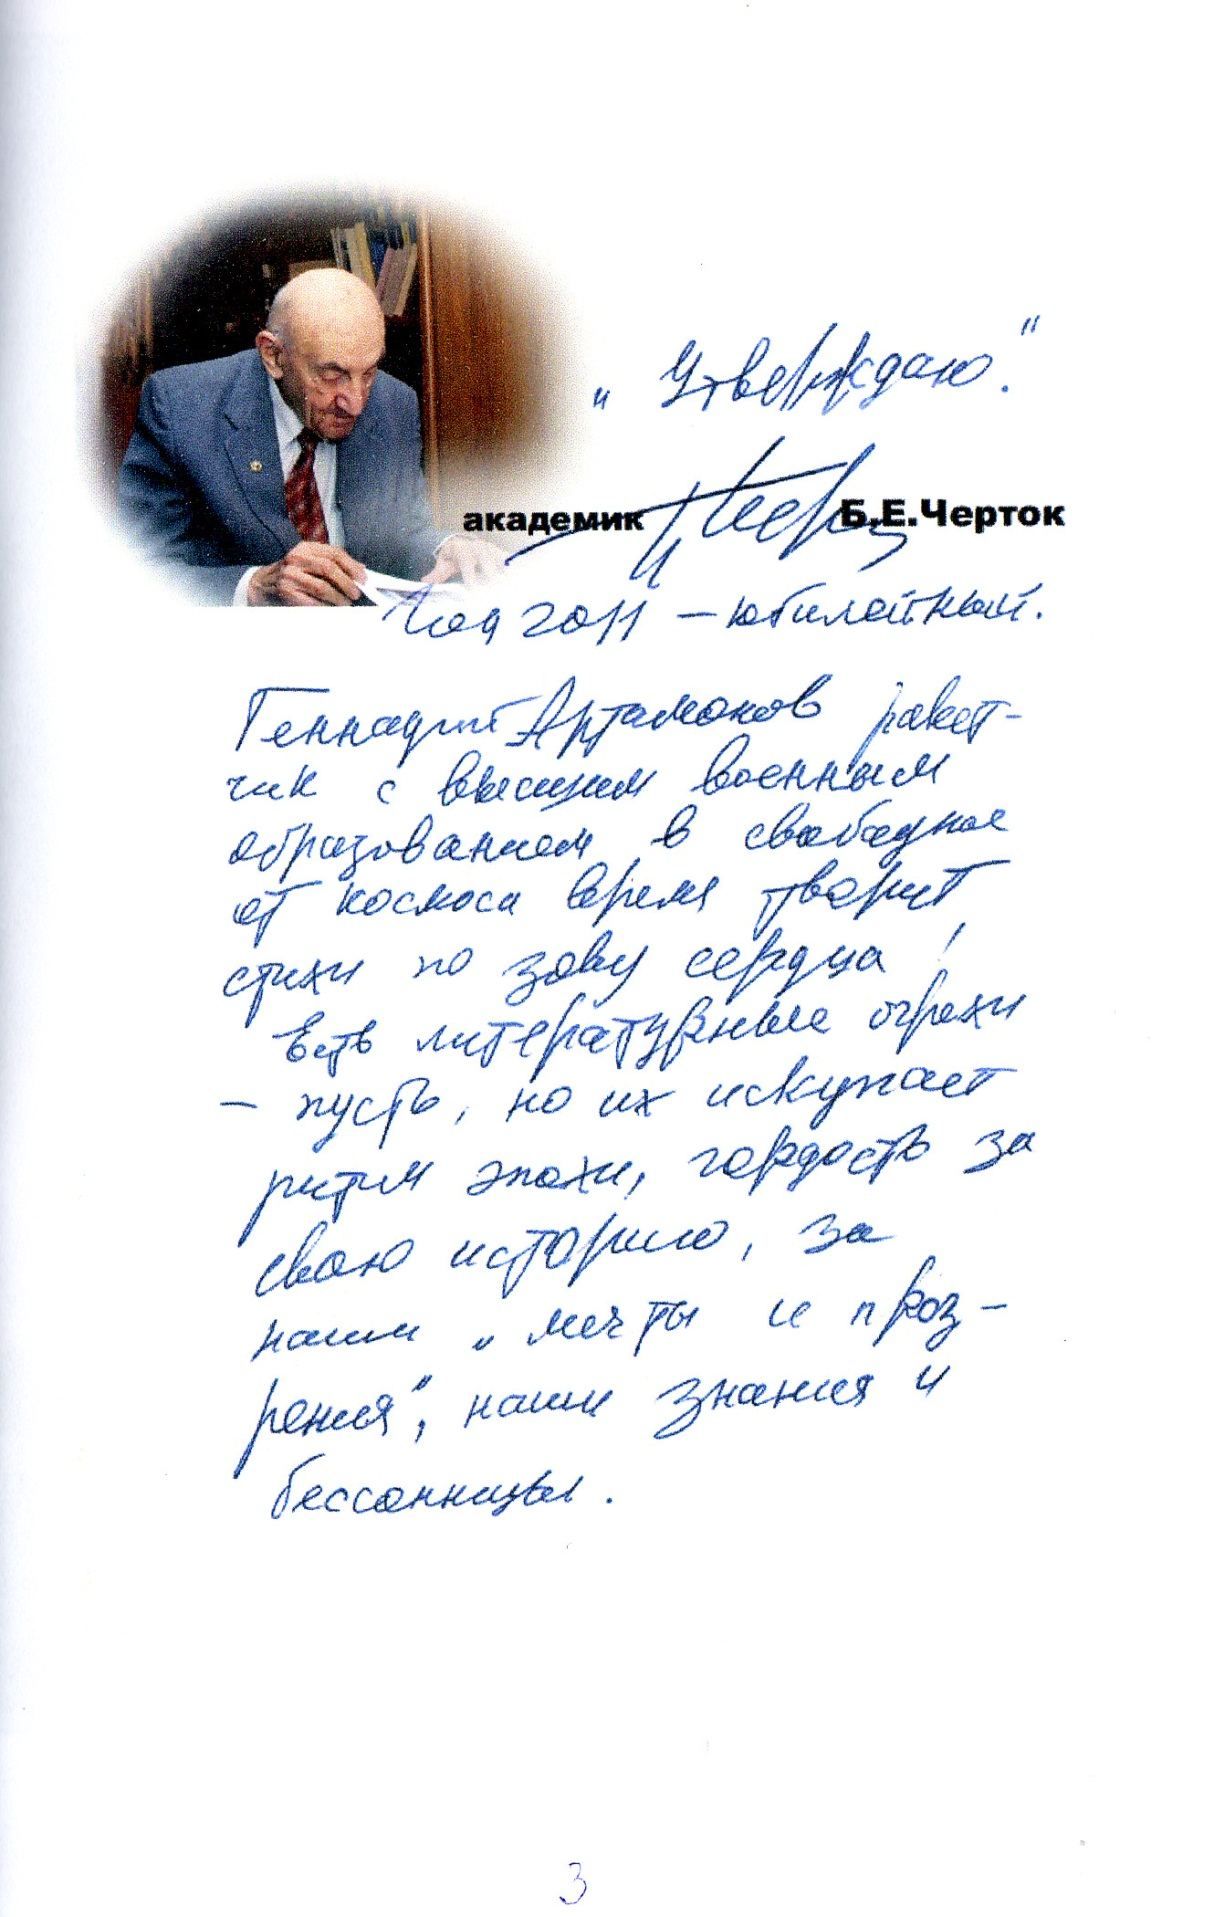 „Утверждаю."
академик Б.Е.Черток
Год 2011 – юбилейный.
Геннадий Артамонов ракет-
чик с высшим военным
образованием в свободное
от космоса время творит
стихи по зову сердца!
Есть литературные огрехи
– пусть, но их искупает
ритм эпохи, гордость за
свою историю, за
наши „мечты и проз-
рения", наши знания и
бессонницы.
3